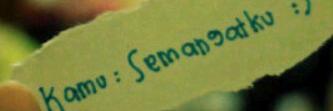 Kamu : Semangatku :)